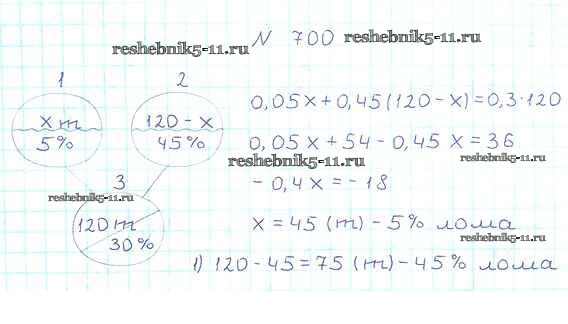 N 700
reshebnik5-11.ru reshebnik5-11.ru
1 2
x т 120 - x
5% 45%
3
reshebnik5-11.ru
120 т
30%
0,05x + 0,45(120 - x) = 0,3·120
0,05x + 54 - 0,45x = 36
reshebnik5-11.ru reshebnik5-11.ru
- 0,4x = - 18
x = 45 (т) - 5% лома
reshebnik5-11.ru
1) 120 - 45 = 75 (т) - 45% лома